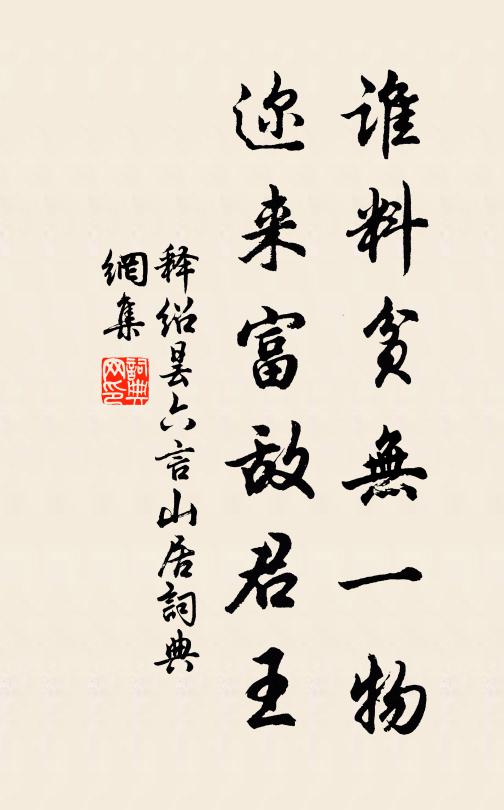 谁料贫無一物
迩来富敌君王
释绍昙六言山居詞典
網集
詞典
网印